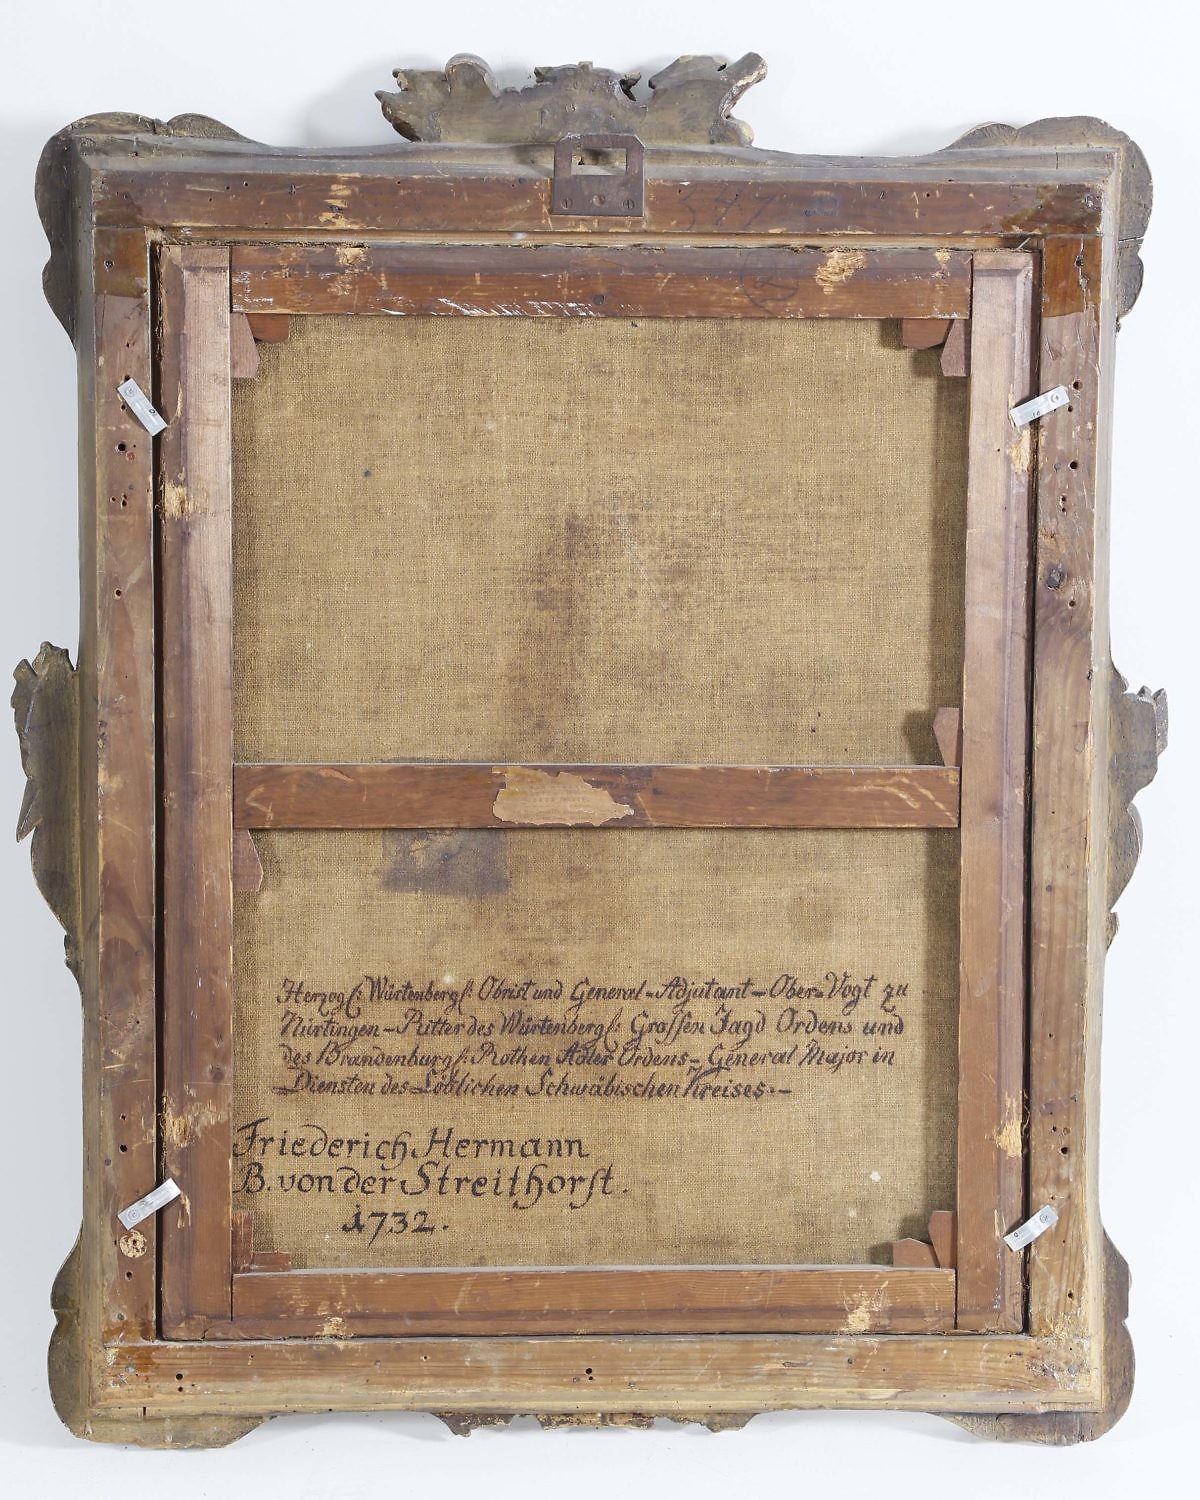 547
Herzogl: Würtenbergl: Obrist und General-Adjutant-Ober-Vogt zu
Nürtingen-Ritter des Würtenbergl: Grossen Jagd Ordens und
des Brandenburgl: Rothen Adler Ordens-General Major in
Diensten des Löblichen Schwäbischen Kreises.-
Friederich Hermann
B. von der Streithorst.
1732.